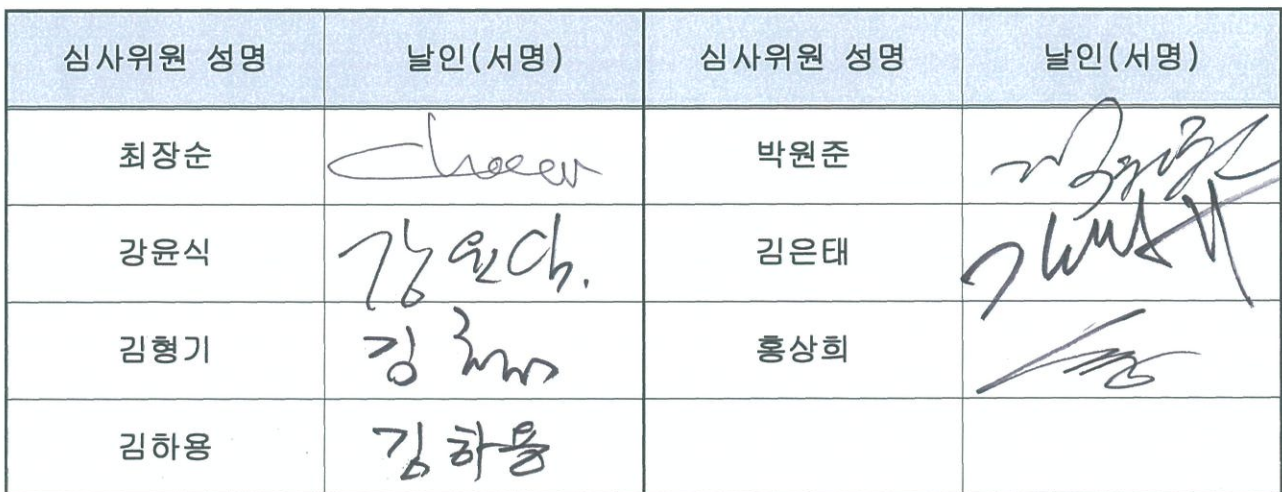 심사위원 성명 날인(서명) 심사위원 성명 날인(서명)
최장순 박원준
강윤식 강윤식. 김은태
김형기 김 홍상희
김하용 김하용